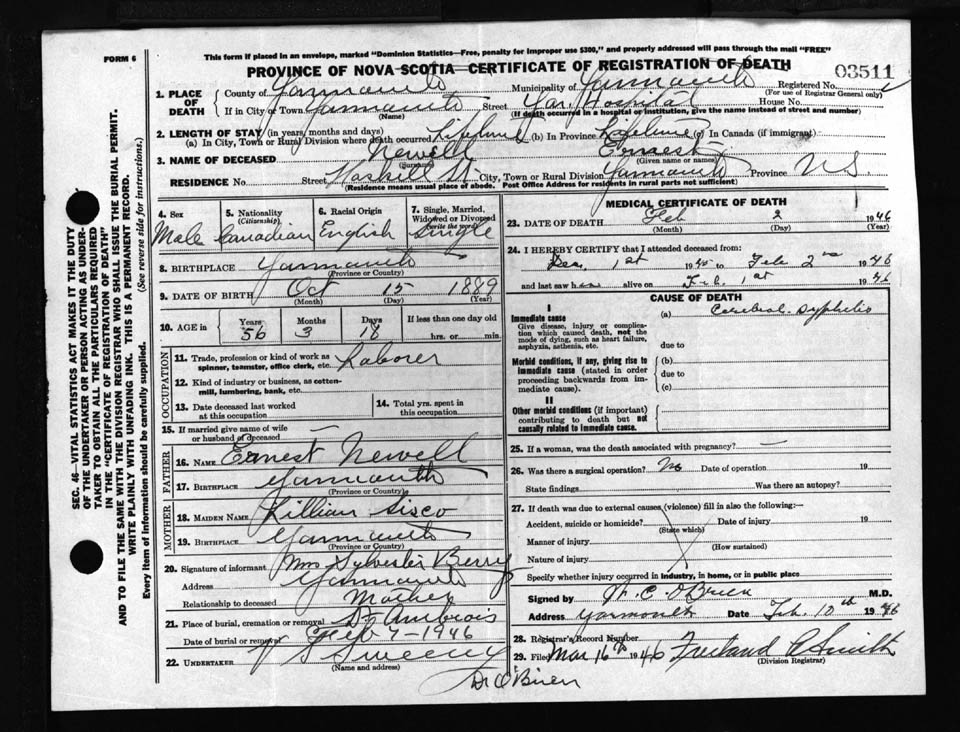 FORM 6
This form if placed in an envelope, marked "Dominion Statistics—Free, penalty for improper use $300," and properly addressed will pass through the mail "FREE"
PROVINCE OF NOVA SCOTIA—CERTIFICATE OF REGISTRATION OF DEATH
03511
1. PLACE OF DEATH
County of Yarmouth Municipality of Yarmouth Registered No.
(For use of Registrar General only)
If in City or Town Yarmouth Street Yar. Hospital House No.
(Name) (If death occurred in a hospital or institution, give the name instead of street and number)
2. LENGTH OF STAY (in years, months and days)
(a) In City, Town or Rural Division where death occurred Lifetime (b) In Province Lifetime (c) In Canada (if immigrant)
3. NAME OF DECEASED Newell Ernest
(Surname) (Given name or names)
RESIDENCE No. Street Haskell St City, Town or Rural Division Yarmouth Province N.S.
(Residence means usual place of abode. Post Office Address for residents in rural parts not sufficient)
4. Sex
Male
5. Nationality
(Citizenship)
Canadian
6. Racial Origin
English
7. Single, Married,
Widowed or Divorced
(write the word)
Single
8. BIRTHPLACE Yarmouth
(Province or Country)
9. DATE OF BIRTH Oct 15 1889
(Month) (Day) (Year)
10. AGE in Years Months Days If less than one day old
56 3 18 hrs. or min.
OCCUPATION
11. Trade, profession or kind of work as
spinner, teamster, office clerk, etc. Laborer
12. Kind of industry or business, as cotton-
mill, lumbering, bank, etc.
13. Date deceased last worked
at this occupation
14. Total yrs. spent in
this occupation
15. If married give name of wife
or husband of deceased —
FATHER
16. NAME Ernest Newell
17. BIRTHPLACE Yarmouth
(Province or Country)
MOTHER
18. MAIDEN NAME Lillian Sisco
19. BIRTHPLACE Yarmouth
(Province or Country)
20. Signature of informant Mrs Sylvester Berry
Address Yarmouth
Relationship to deceased Mother
21. Place of burial, cremation or removal St Ambrois
Date of burial or removal Feb 7-1946
22. UNDERTAKER V S Sweeny
(Name and address)
Dr O'Brien
MEDICAL CERTIFICATE OF DEATH
23. DATE OF DEATH Feb 2 1946
(Month) (Day) (Year)
24. I HEREBY CERTIFY that I attended deceased from:
Dec. 1st 1945 to Feb 2nd 1946
and last saw him alive on Feb. 1st 1946
CAUSE OF DEATH
I
Immediate cause
Give disease, injury or complication which caused death, not the mode of dying, such as heart failure, asphyxia, asthenia, etc.
(a) Cerebral Syphilis
due to
Morbid conditions, if any, giving rise to immediate cause (stated in order proceeding backwards from immediate cause).
(b)
due to
(c)
II
Other morbid conditions (if important) contributing to death but not causally related to immediate cause.
25. If a woman, was the death associated with pregnancy? —
26. Was there a surgical operation? No Date of operation 19
State findings Was there an autopsy?
27. If death was due to external causes (violence) fill in also the following:—
Accident, suicide or homicide? Date of injury 19
(State which)
Manner of injury
(How sustained)
Nature of injury
Specify whether injury occurred in industry, in home, or in public place
Signed by W. C. O'Brien M.D.
Address Yarmouth Date Feb. 10th 1946
28. Registrar's Record Number
29. Filed Mar 16th 1946 Freeland C Smith
(Division Registrar)
SEC. 46—VITAL STATISTICS ACT MAKES IT THE DUTY
OF THE UNDERTAKER OR PERSON ACTING AS UNDER-
TAKER TO OBTAIN ALL THE PARTICULARS REQUIRED
IN THE "CERTIFICATE OF REGISTRATION OF DEATH"
AND TO FILE THE SAME WITH THE DIVISION REGISTRAR WHO SHALL ISSUE THE BURIAL PERMIT.
WRITE PLAINLY WITH UNFADING INK. THIS IS A PERMANENT RECORD.
Every item of information should be carefully supplied. (See reverse side for instructions.)